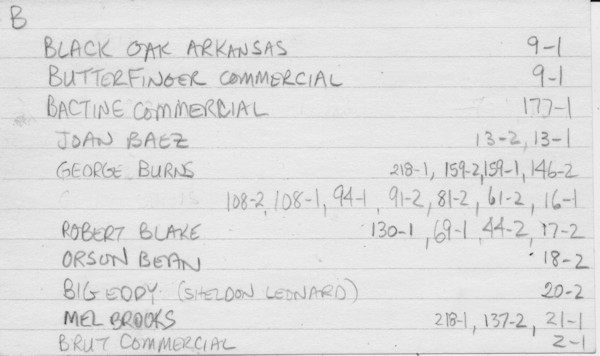 B
BLACK OAK ARKANSAS 9-1
BUTTERFINGER COMMERCIAL 9-1
BACTINE COMMERCIAL 177-1
JOAN BAEZ 13-2, 13-1
GEORGE BURNS 218-1, 159-2, 159-1, 146-2
108-2, 108-1, 94-1, 91-2, 81-2, 61-2, 16-1
ROBERT BLAKE 130-1, 69-1, 44-2, 17-2
ORSON BEAN 18-2
BIG EDDY (SHELDON LEONARD) 20-2
MEL BROOKS 218-1, 137-2, 21-1
BRUT COMMERCIAL 2-1